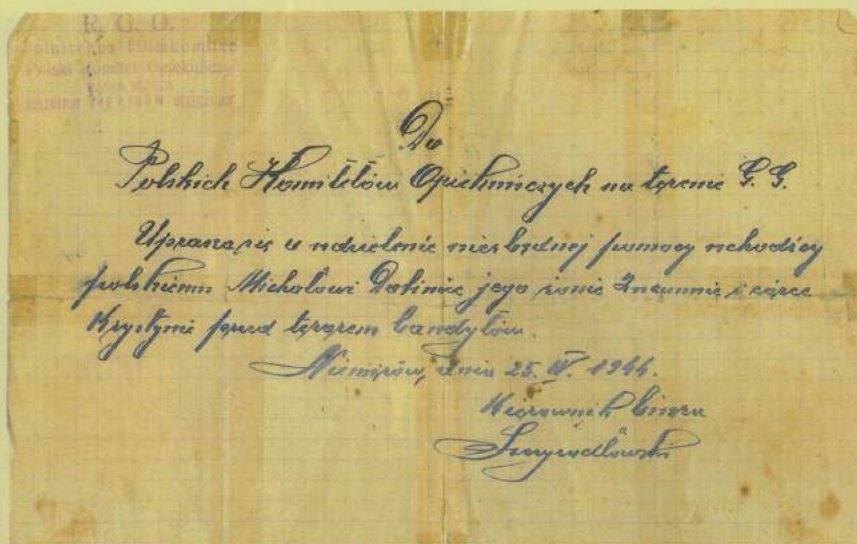 R. G. O.
Polnisches Hilfskomitee
Polski Komitet Opiekuńczy
Do
Polskich Komitetów Opiekuńczych na terenie G. G.
Uprasza się o udzielenie niezbędnej pomocy uchodźcy
polskiemu Michałowi Dolinie jego żonie Zuzannie i córce
Krystynie przed terorem bandytów.
Niemirów, dnia 25. IV. 1944.
Kierownik biura